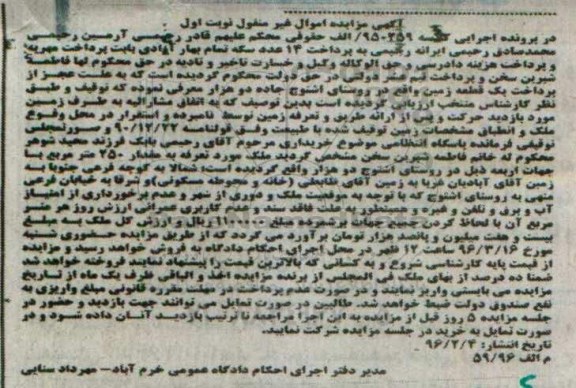 آگهی مزایده اموال غیر منقول نوبت اول
در پرونده اجرایی کلاسه 359-95/ الف حقوقی محکم علیهم قادر رحیمی آرمین رحیمی
محمدصادق رحیمی ایرانه رحیمی به پرداخت 14 عدد سکه تمام بهار آزادی بابت پرداخت مهریه
و پرداخت هزینه دادرسی و حق الوکاله وکیل و خسارت تاخیر و تادیه در حق محکوم لها فاطمه
شیرین سخن و پرداخت نیم عشر دولتی در حق دولت محکوم گردیده است که به علت عجز از
پرداخت یک قطعه زمین واقع در روستای اشتوج جاده دو هزار معرفی نموده که توقیف و طبق
نظر کارشناس منتخب ارزیابی گردیده است بدین توصیف که به اتفاق مشارالیه به طرف زمین
مورد بازدید حرکت و پس از ارائه طریق و تعرفه زمین توسط نامبرده و استقرار در محل وقوع
ملک و انطباق مشخصات زمین توقیف شده با طبیعت وفق قولنامه 90/12/22 و صورتمجلس
توقیفی فرمانده پاسگاه انتظامی موضوع خریداری مرحوم آقای رحیمی بابک فرزند مجید شوهر
محکوم له خانم فاطمه شیرین سخن مشخص گردید ملک مورد تعرفه به مقدار 250 متر مربع با
جهات اربعه ذیل در روستای اشتوج دو هزار واقع گردیده است: شمالا به کوچه فرعی جنوبا به
زمین آقای آبادیان غربا به زمین آقای طایعلی (خانه و محوطه مسکونی) و شرقا به خیابان فرعی
منتهی به روستای اشتوج که با توجه به موقعیت ملک و دوری از شهر و عدم برخورداری از امتیاز
آب و برق و تلفن و غیره و همینطور ملک فاقد سند و عدم کاربری عمرانی ارزش روز هر متر
مربع آن با لحاظ کردن جمیع جهات موثر به مبلغ ریال و ارزش کل ملک به مبلغ
بیست و هفت میلیون و پانصد هزار تومان برآورد می گردد که از طریق مزایده حضوری شنبه
مورخ 96/3/16 ساعت 12 ظهر در محل اجرای احکام دادگاه به فروش خواهد رسید و مزایده
از قیمت پایه کارشناسی شروع و به کسانی که بالاترین قیمت را پیشنهاد نمایند فروخته خواهد شد
ضمنا ده درصد از بهای ملک فی المجلس از برنده مزایده اخذ و الباقی ظرف یک ماه از تاریخ
مزایده می بایستی واریز نمایند و در صورت عدم پرداخت در مهلت مقرره قانونی مبلغ واریزی به
نفع صندوق دولت ضبط خواهد شد. طالبین در صورت تمایل می توانند جهت بازدید و حضور در
جلسه مزایده 5 روز قبل از مزایده به این اجرا مراجعه تا ترتیب بازدید آنان داده شود و در
صورت تمایل به خرید در جلسه مزایده شرکت نمایند.
تاریخ انتشار: 96/2/4
م الف 59/96
مدیر دفتر اجرای احکام دادگاه عمومی خرم آباد– مهرداد سنایی